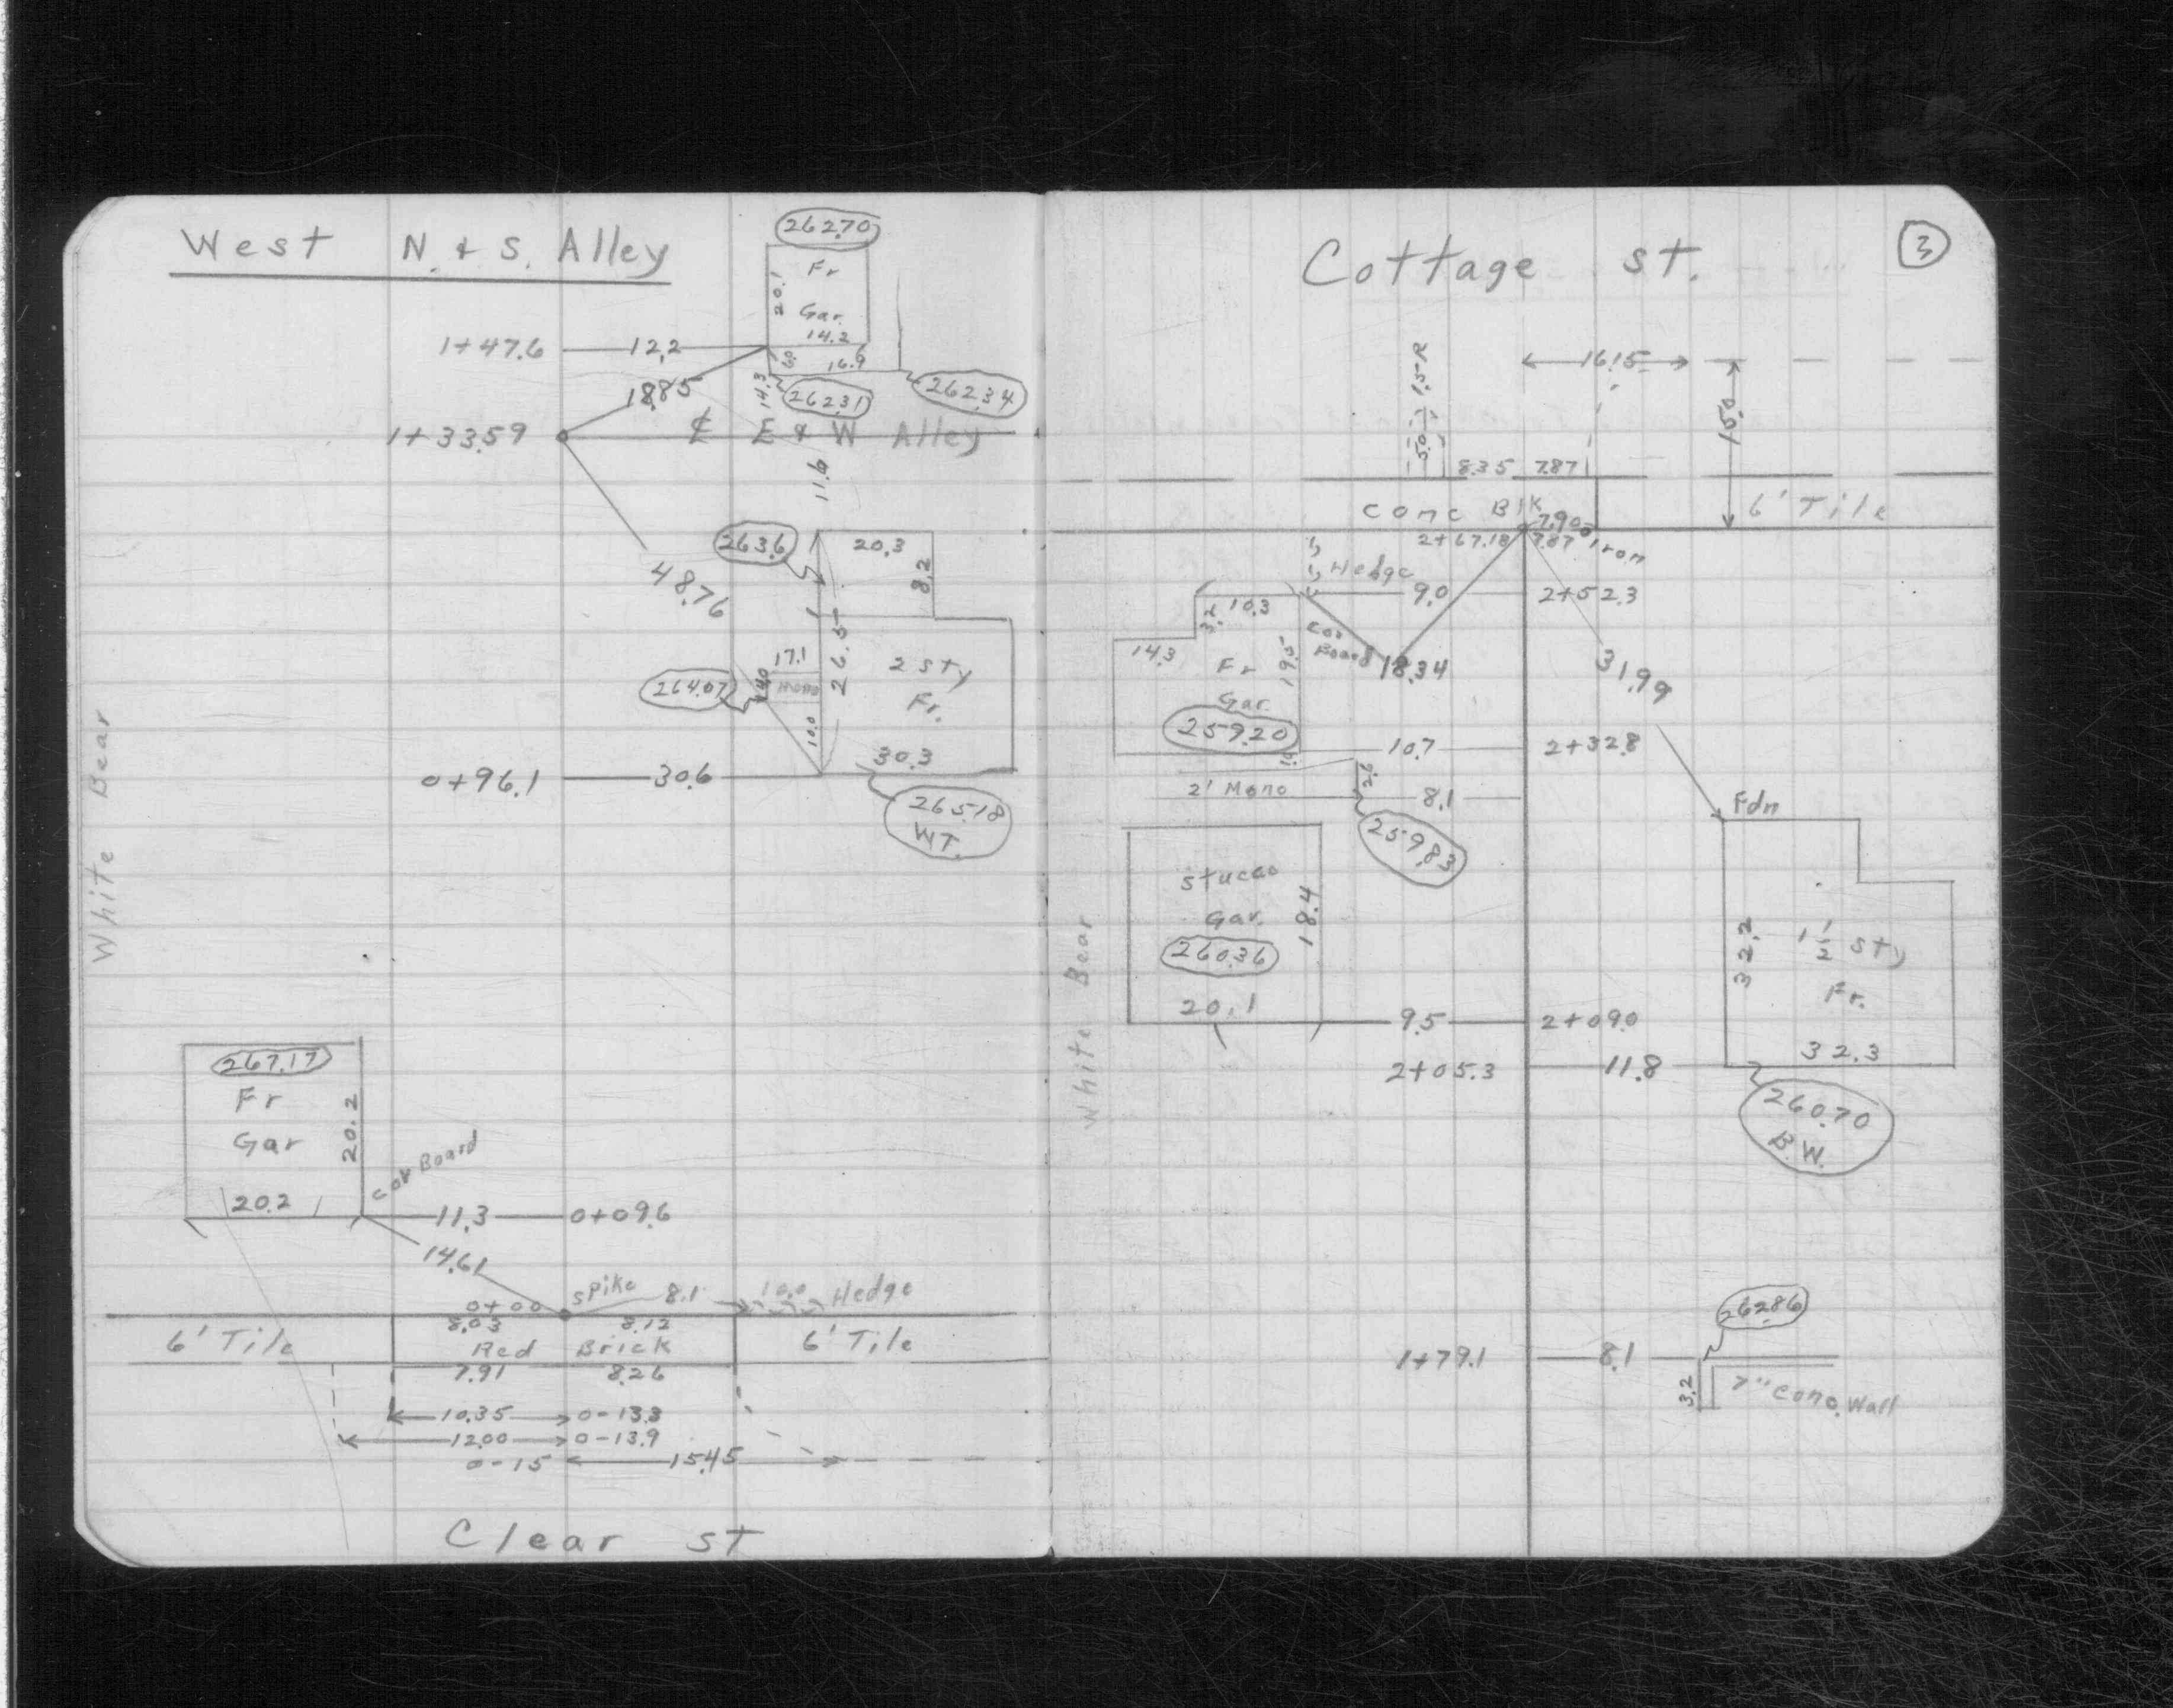 West N. & S. Alley
262.70
20.1
Fr
Gar.
14.2
1+47.6
12.2
16.9
18.85
14.3
262.31
262.34
1+33.59
℄ E & W Alley
11.6
263.6
20.3
8.2
48.76
17.1
26.5
2 sty
Fr.
264.07
14.0
Mono
10.0
30.3
0+96.1
30.6
265.18
W.T.
White Bear
267.17
Fr
Gar
20.2
20.2
Cor Board
11.3
0+09.6
14.61
Spike
8.1
10.0
Hedge
0+00
8.03
8.12
6' Tile
Red Brick
6' Tile
7.91
8.26
10.35
0-13.3
12.00
0-13.9
0-15
15.45
Clear St
Cottage St.
3
1.5-R
16.15
15.0
5.0
8.35
7.87
Conc Blk
7.90
6' Tile
2+67.18
7.87
Iron
Hedge
9.0
2+52.3
10.3
3.2
Cor Board
14.3
Fr
19.5
18.34
31.99
Gar.
259.20
10.7
2+32.8
2' Mono
2.6
8.1
259.83
Fdn
Stucco
Gar.
18.4
260.36
20.1
32.2
1 1/2 sty
Fr.
32.3
9.5
2+09.0
2+05.3
11.8
260.70
B.W.
White Bear
262.86
1+79.1
8.1
3.2
7" Conc. Wall